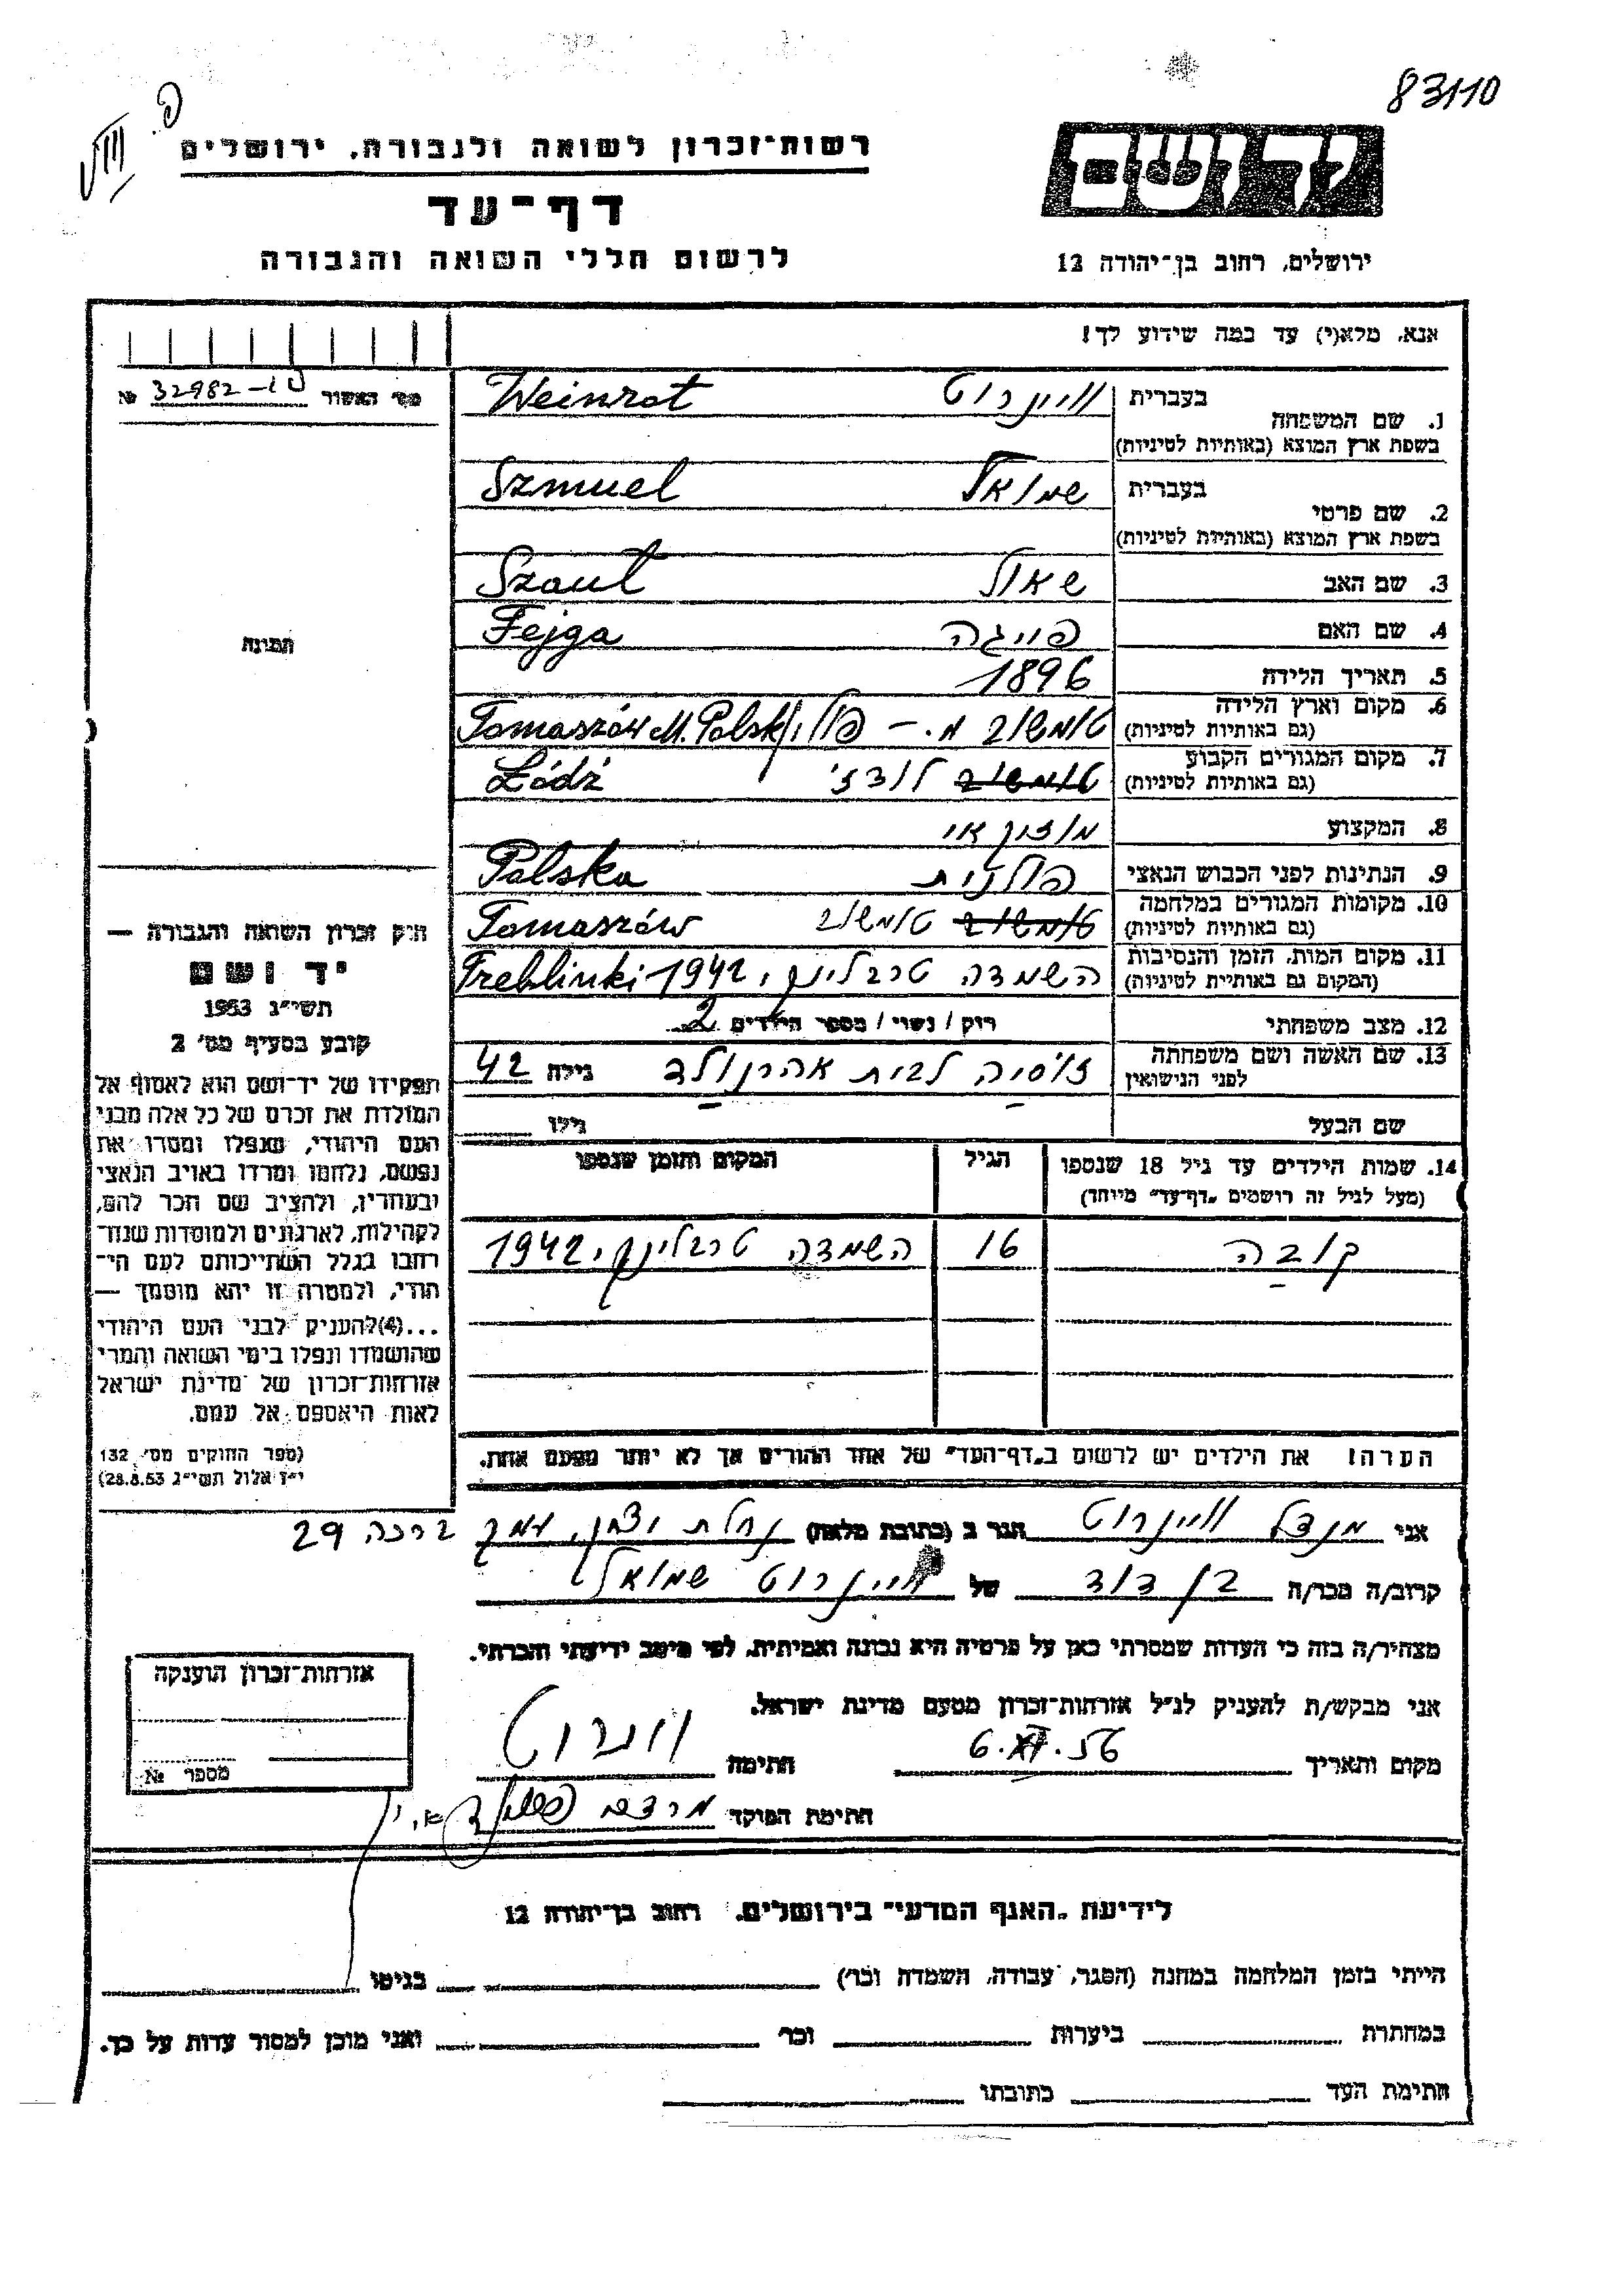 83110
פ.
רשות־זכרון לשואה ולגבורה, ירושלים
דף־עד
לרשום חללי השואה והגבורה
ידושם
ירושלים, רחוב בן־יהודה 12
אנא, מלא(י) עד כמה שידוע לך!
מס' האשור 32982 №
1. שם המשפחה בעברית וויינרוט Weinrot
בשפת ארץ המוצא (באותיות לטיניות)
2. שם פרטי בעברית שמואל Szmuel
בשפת ארץ המוצא (באותיות לטיניות)
3. שם האב שאול Szaul
4. שם האם פייגה Fejga
5. תאריך הלידה 1896
6. מקום וארץ הלידה טומשוב מ. – פולין Tomaszów M. Polska
(גם באותיות לטיניות)
7. מקום המגורים הקבוע טומשוב לודז' Łódź
(גם באותיות לטיניות)
8. המקצוע
9. הנתינות לפני הכבוש הנאצי פולנית Polska
10. מקומות המגורים במלחמה טומשוב טומשוב Tomaszów
(גם באותיות לטיניות)
11. מקום המות, הזמן והנסיבות השמדה טרבלינקי, 1942 Treblinki
(המקום גם באותיות לטיניות)
12. מצב משפחתי רוק / נשוי / מספר הילדים 2
13. שם האשה ושם משפחתה לפני הנישואין זוסיה לבית אהרנולד גילה 42
שם הבעל גילו
14. שמות הילדים עד גיל 18 שנספו הגיל המקום והזמן שנספו
(מעל לגיל זה רושמים „דף־עד" מיוחד)
קובה 16 השמדה טרבלינקי, 1942
הערה! את הילדים יש לרשום ב„דף־העד" של אחד ההורים אך לא יותר מפעם אחת.
תמונה
חוק זכרון השואה והגבורה —
יד ושם
תשי״ג 1953
קובע בסעיף מס' 2
תפקידו של יד־ושם הוא לאסוף אל
המולדת את זכרם של כל אלה מבני
העם היהודי, שנפלו ומסרו את
נפשם, נלחמו ומרדו באויב הנאצי
ובעוזריו, ולהציב שם וזכר להם,
לקהילות, לארגונים ולמוסדות שנח־
רבו בגלל השתייכותם לעם הי־
הודי, ולמטרה זו יהא מוסמך —
...(4)להעניק לבני העם היהודי
שהושמדו ונפלו בימי השואה והמרי
אזרחות־זכרון של מדינת ישראל
לאות היאספם אל עמם.
(ספר החוקים מס' 132
י״ז אלול תשי״ג 28.8.53)
אני מנדל וויינרוט הגר ב (כתובת מלאה) נחלת יצחק, עמק ברכה 29
קרוב/ה מכר/ה בן דוד של וויינרוט שמואל
מצהיר/ה בזה כי העדות שמסרתי כאן על פרטיה היא נכונה ואמיתית, לפי מיטב ידיעתי והכרתי.
אני מבקש/ת להעניק לנ״ל אזרחות־זכרון מטעם מדינת ישראל.
מקום ותאריך 6.XI.56 חתימה
חתימת הפוקד
אזרחות־זכרון הוענקה
מספר №
לידיעת „האגף המדעי" בירושלים, רחוב בן־יהודה 12
הייתי בזמן המלחמה במחנה (הסגר, עבודה, השמדה וכו') בגיטו
במחתרת ביערות וכו' ואני מוכן למסור עדות על כך.
חתימת העד כתובתו